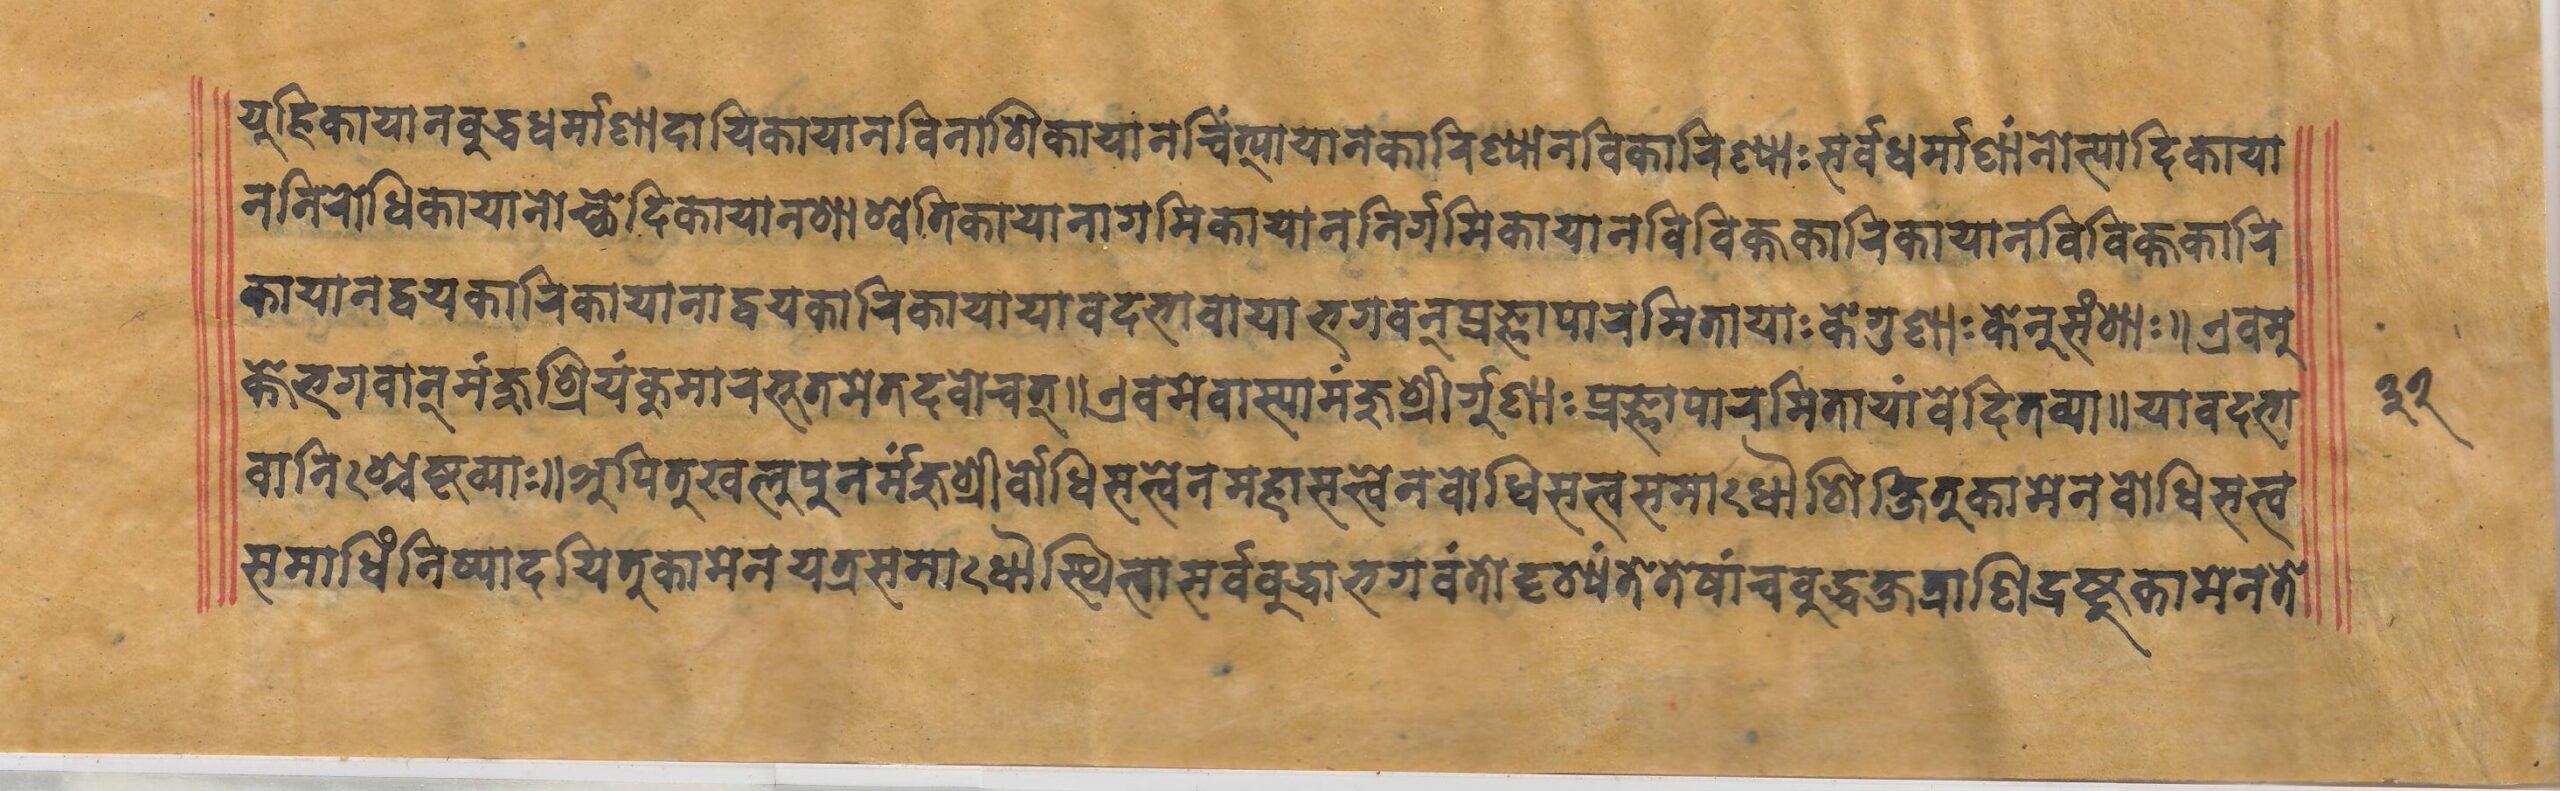 यूहिकाया न बुद्धधर्माणां दायिकाया न विनाशिकाया न चिंत्याया न कारिण्या न विकारिण्याः सर्वधर्माणां नोत्पादिकाया
न निरोधिकाया नोच्छेदिकाया न शाश्वतिकाया नागमिकाया न निर्गमिकाया न विविक्तकारिकाया न विविक्तकारि
काया न द्वयकारिकाया नाद्वयकारिकाया यावदभावाया भगवन् प्रज्ञापारमितायाः के गुणाः केनुसंशाः॥ एवमु
क्ते भगवान् मंजुश्रियं कुमारभूतमेतदवोचत्॥ एवमेवास्या मंजुश्रीर्गुणाः प्रज्ञापारमितायां वेदितव्या॥ यावदभा
वानिःश्चेष्टव्याः॥ अपि तु खलु पुनर्मंजुश्रीर्बोधिसत्त्वेन महासत्त्वेन बोधिसत्त्वसमाःधौ शिक्षितुकामेन बोधिसत्त्व
समाधिं निष्पादयितुकामेन यत्र समाःधौ स्थित्वा सर्वबुद्धा भगवंतो दृश्यंते तेषां च बुद्धक्षत्राणि द्रष्टुकामेन ते
३२